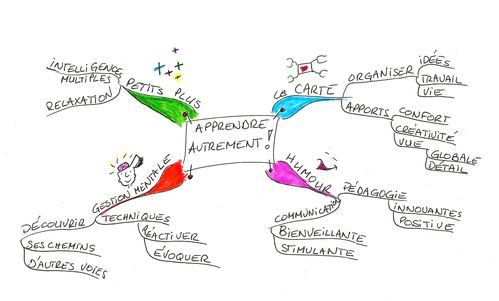 APPRENDRE
AUTREMENT!
LA CARTE
ORGANISER
IDÉES
TRAVAIL
VIE
APPORTS
CONFORT
CRÉATIVITÉ
VUE
GLOBALE
DÉTAIL
HUMOUR
PÉDAGOGIE
INNOVANTES
POSITIVE
COMMUNICATION
BIENVEILLANTE
STIMULANTE
GESTION MENTALE
TECHNIQUES
RÉACTIVER
ÉVOQUER
DÉCOUVRIR
SES CHEMINS
D'AUTRES VOIES
PETITS PLUS
INTELLIGENCES
MULTIPLES
RELAXATION